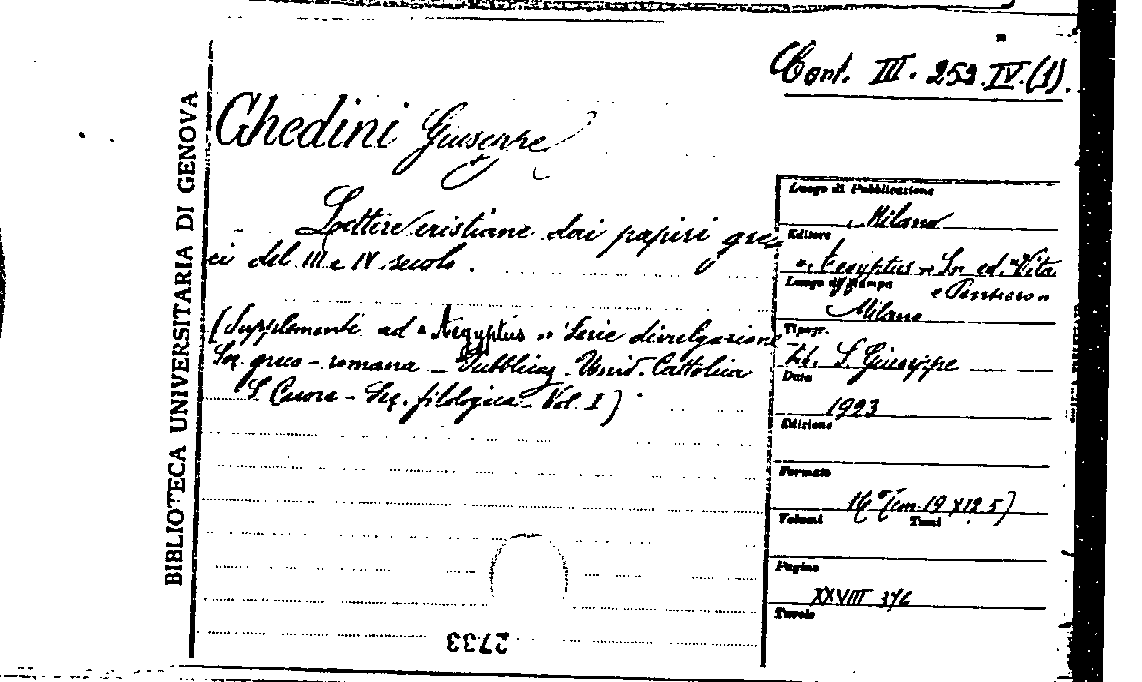 Cont. III. 252. IV. (1).
BIBLIOTECA UNIVERSITARIA DI GENOVA
Ghedini Giuseppe
Lettere cristiane dai papiri gre-
ci del III e IV secolo.
(Supplementi ad "Aegyptus" Serie divulgazione
Sez. greco-romana - Pubblicaz. Univ. Cattolica
S. Cuore - Sez. filologica - Vol. I)
Luogo di Pubblicazione
Milano
Editore
"Aegyptus" Soc. ed. "Vita
e Pensiero"
Luogo di stampa
Milano
Tipogr.
S. Giuseppe
Data
1923
Edizione
Formato
16° (cm. 19 X 12.5)
Volumi Tomi
Pagine
XXVIII 376
Tavole
2733